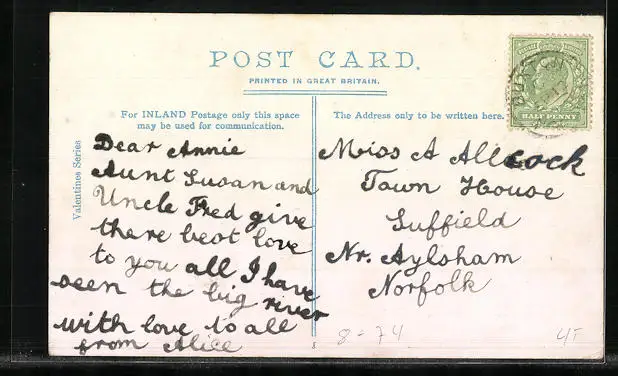 POST CARD.
PRINTED IN GREAT BRITAIN.
For INLAND Postage only this space
may be used for communication.
The Address only to be written here.
HALF PENNY
Valentines Series
Dear Annie
Aunt Susan and
Uncle Fred give
there best love
to you all I have
seen the big river
with love to all
from Alice
Miss A Allcock
Town House
Suffield
Nr. Aylsham
Norfolk
8-74
8